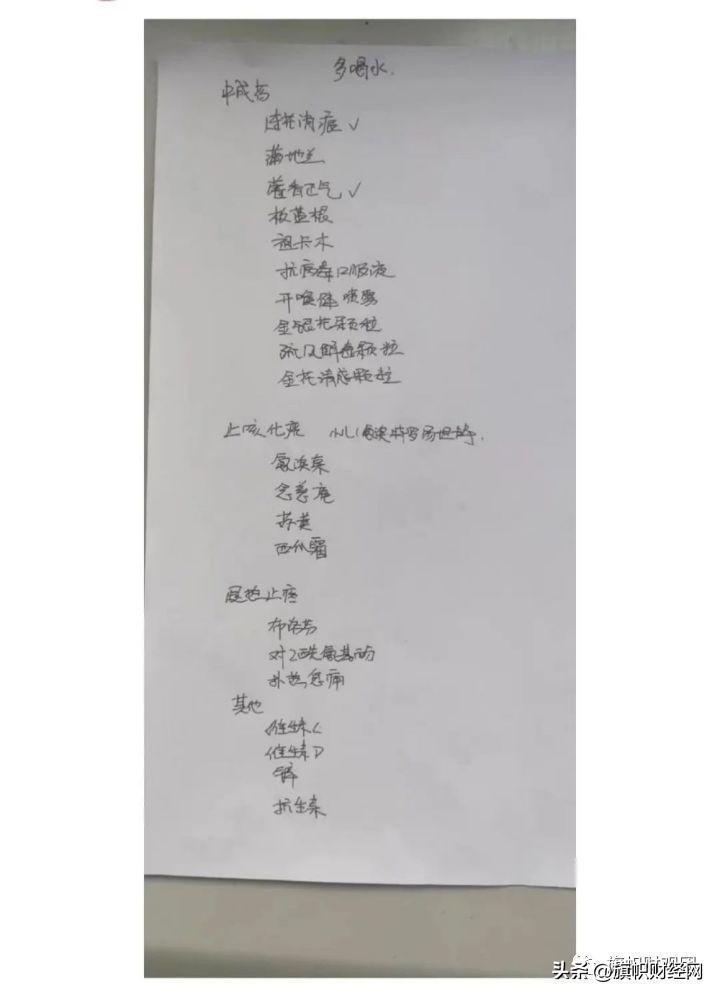 多喝水.
中成药
连花清瘟 ✓
蒲地兰
藿香正气 ✓
板蓝根
祖卡木
抗病毒口服液
开喉健喷雾
金银花颗粒
疏风解毒颗粒
金花清感颗粒
止咳化痰
氨溴索
念慈庵
苏黄
西瓜霜
退热止疼
布洛芬
对乙酰氨基酚
扑热息痛
其他
维生素C
维生素D
锌
抗生素
头条 @旗帜财经网